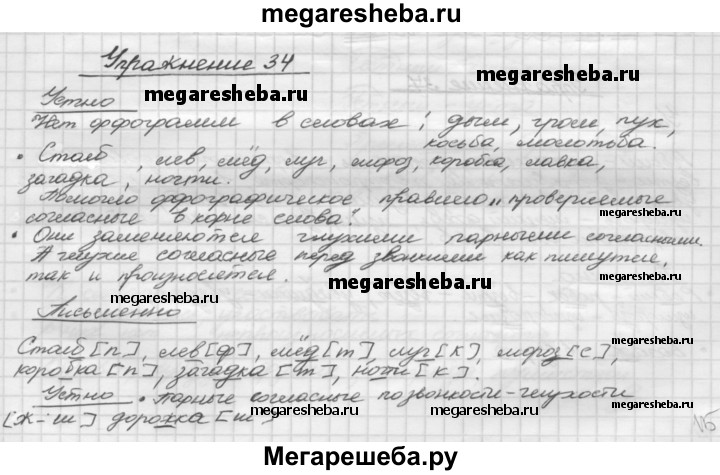 megaresheba.ru
Упражнение 34
megaresheba.ru
Устно megaresheba.ru
Нет орфограмм в словах: дым, гром, пух,
косьба, молотьба.
• Столб, лев, мёд, луг, мороз, коробка, лавка,
загадка, ногти.
Помогло орфографическое правило "проверяемые
согласные в корне слова".
megaresheba.ru
• Они заменяются глухими парными согласными.
А глухие согласные перед звонкими как пишутся,
так и произносятся. megaresheba.ru
megaresheba.ru
Письменно megaresheba.ru
Столб [п], лев [ф], мёд [т], луг [к], мороз [с],
коробка [п], загадка [т], ногти [к].
megaresheba.ru
Устно • Парные согласные по звонкости-глухости
[ж-ш] дорожка [ш]
megaresheba.ru
15
Мегарешеба.ру